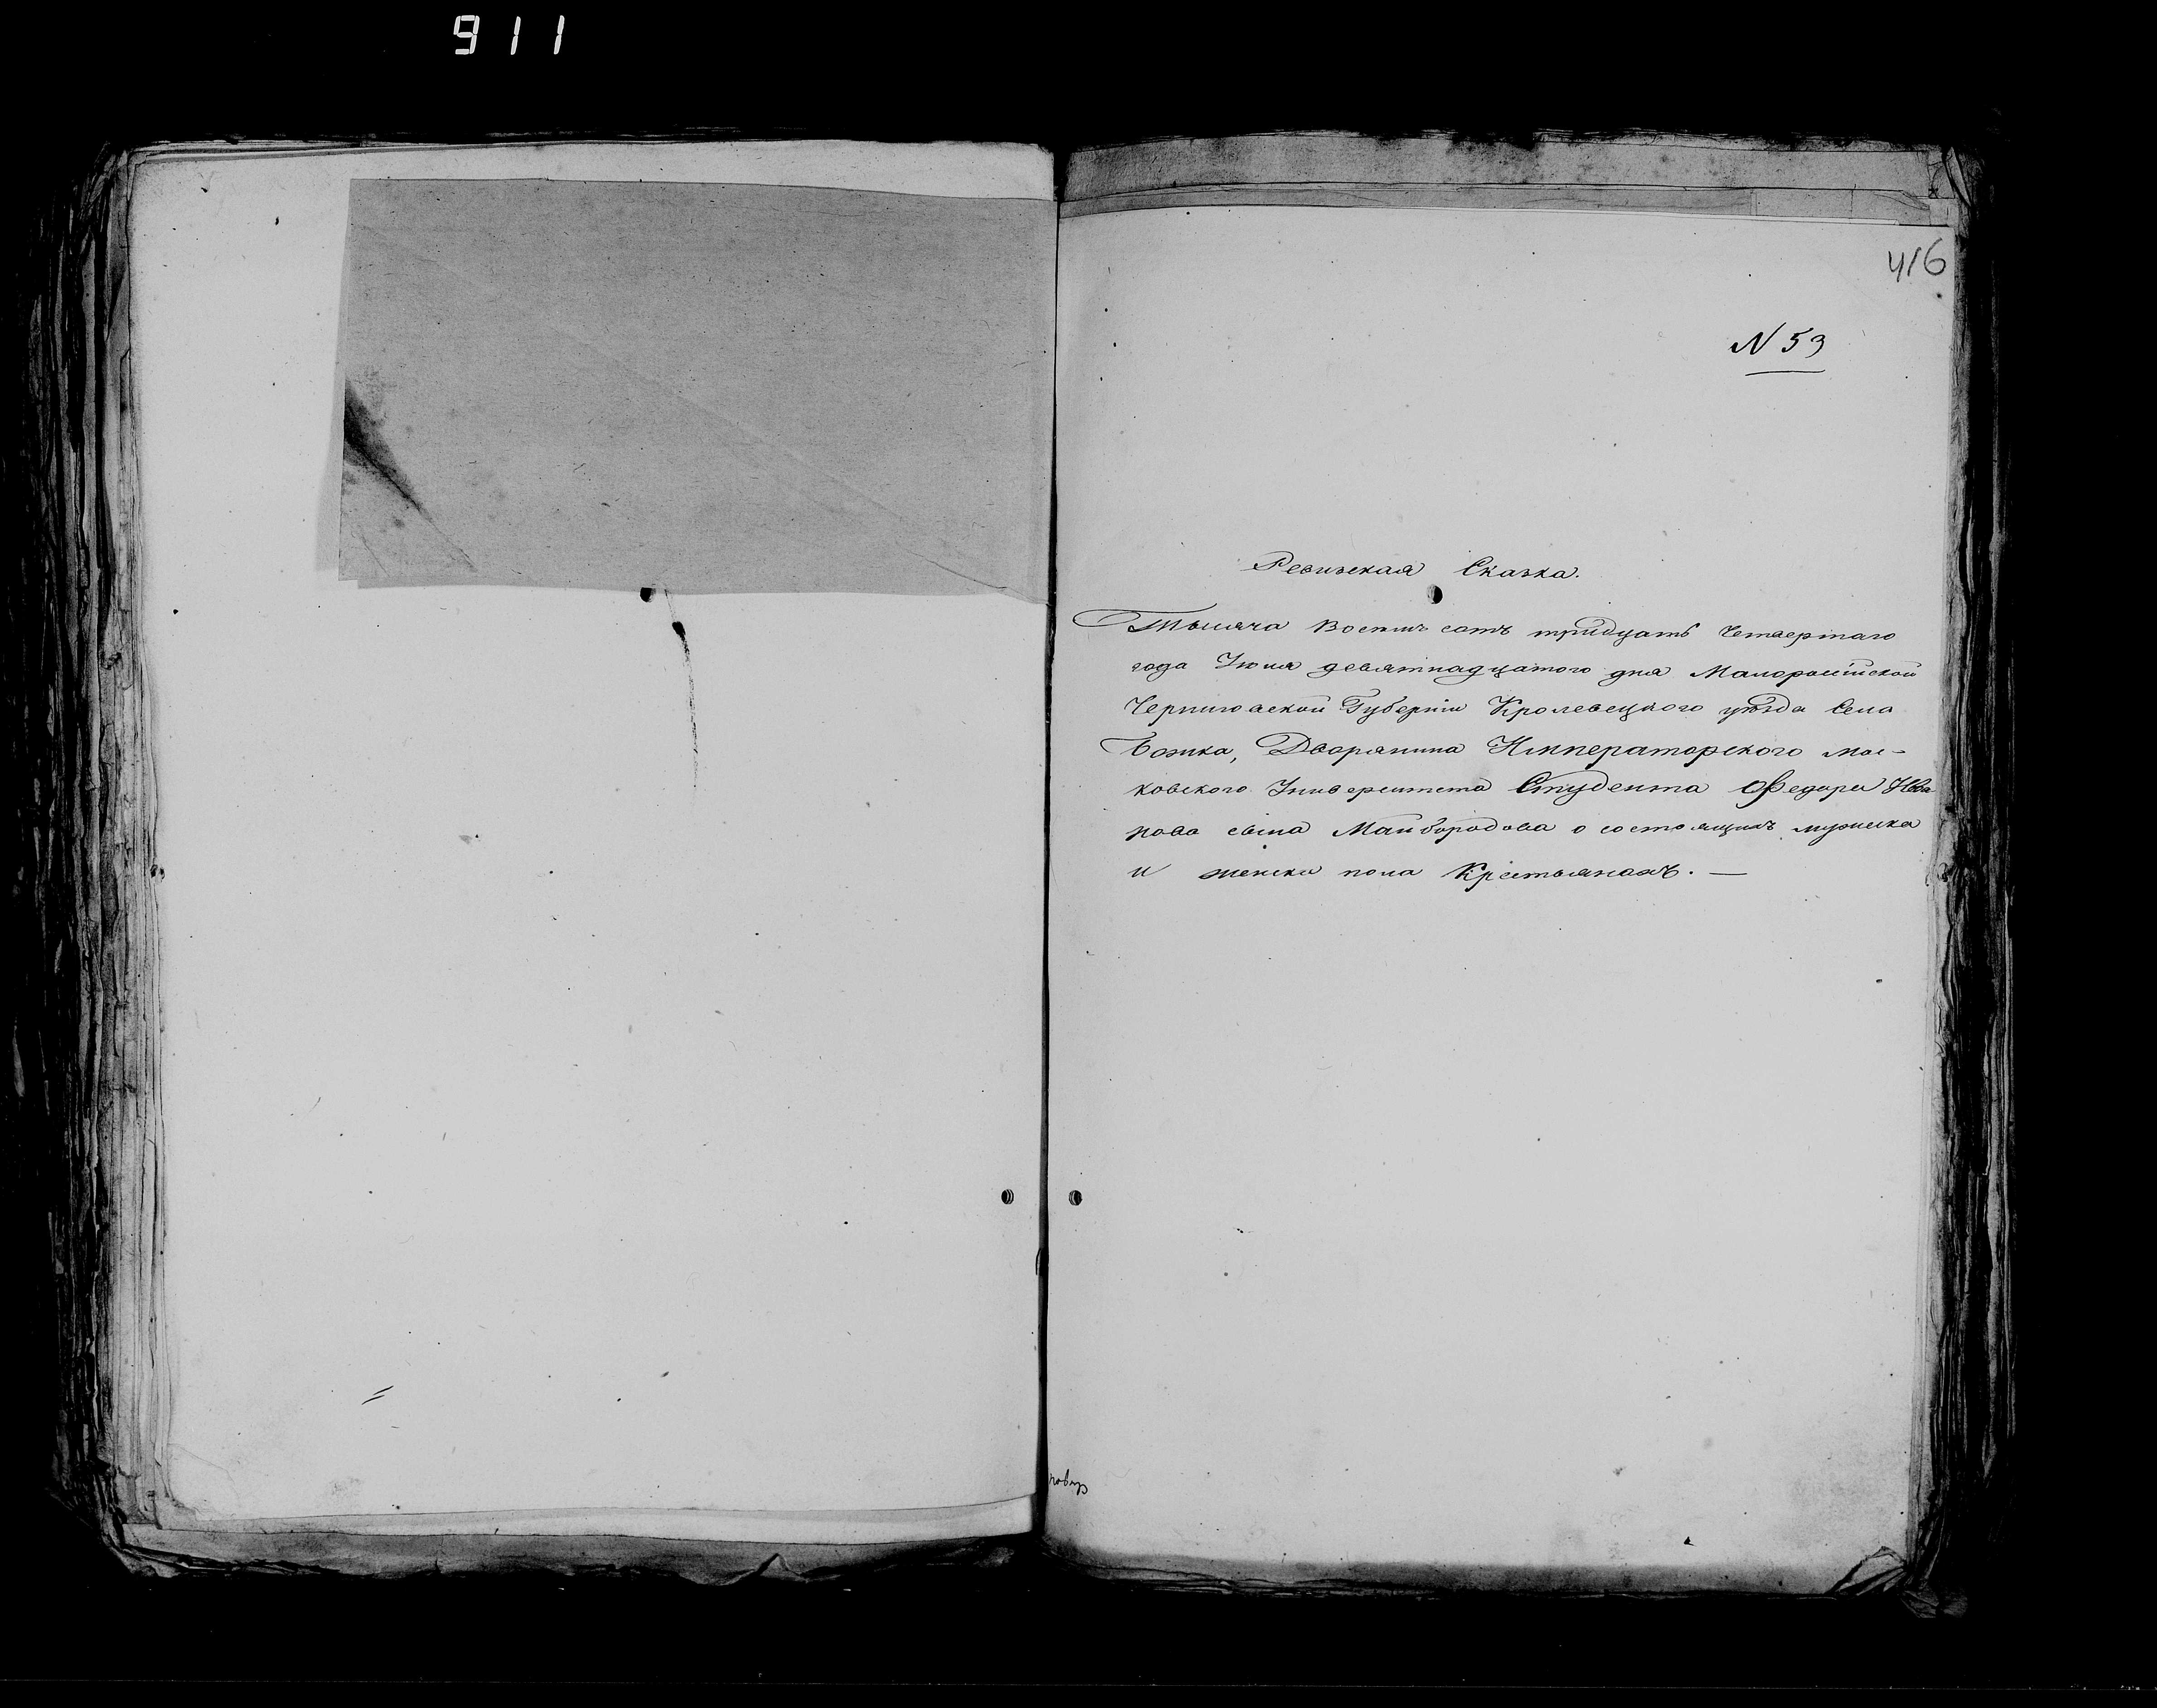 911
416
N 53
Ревизская Сказка.
Тысяча восемь сотъ тридцать Четвертаго
года Июня девятнадцатого дня Малоросiйской
Черниговской Губернiи Кролевецкого уѣзда Села
Божка, Дворянина Императорского Мос-
ковского Университета Студента Федора Ива
нова сына Майбородова о состоящихъ мужеска
и женска пола Крестьянахъ. —